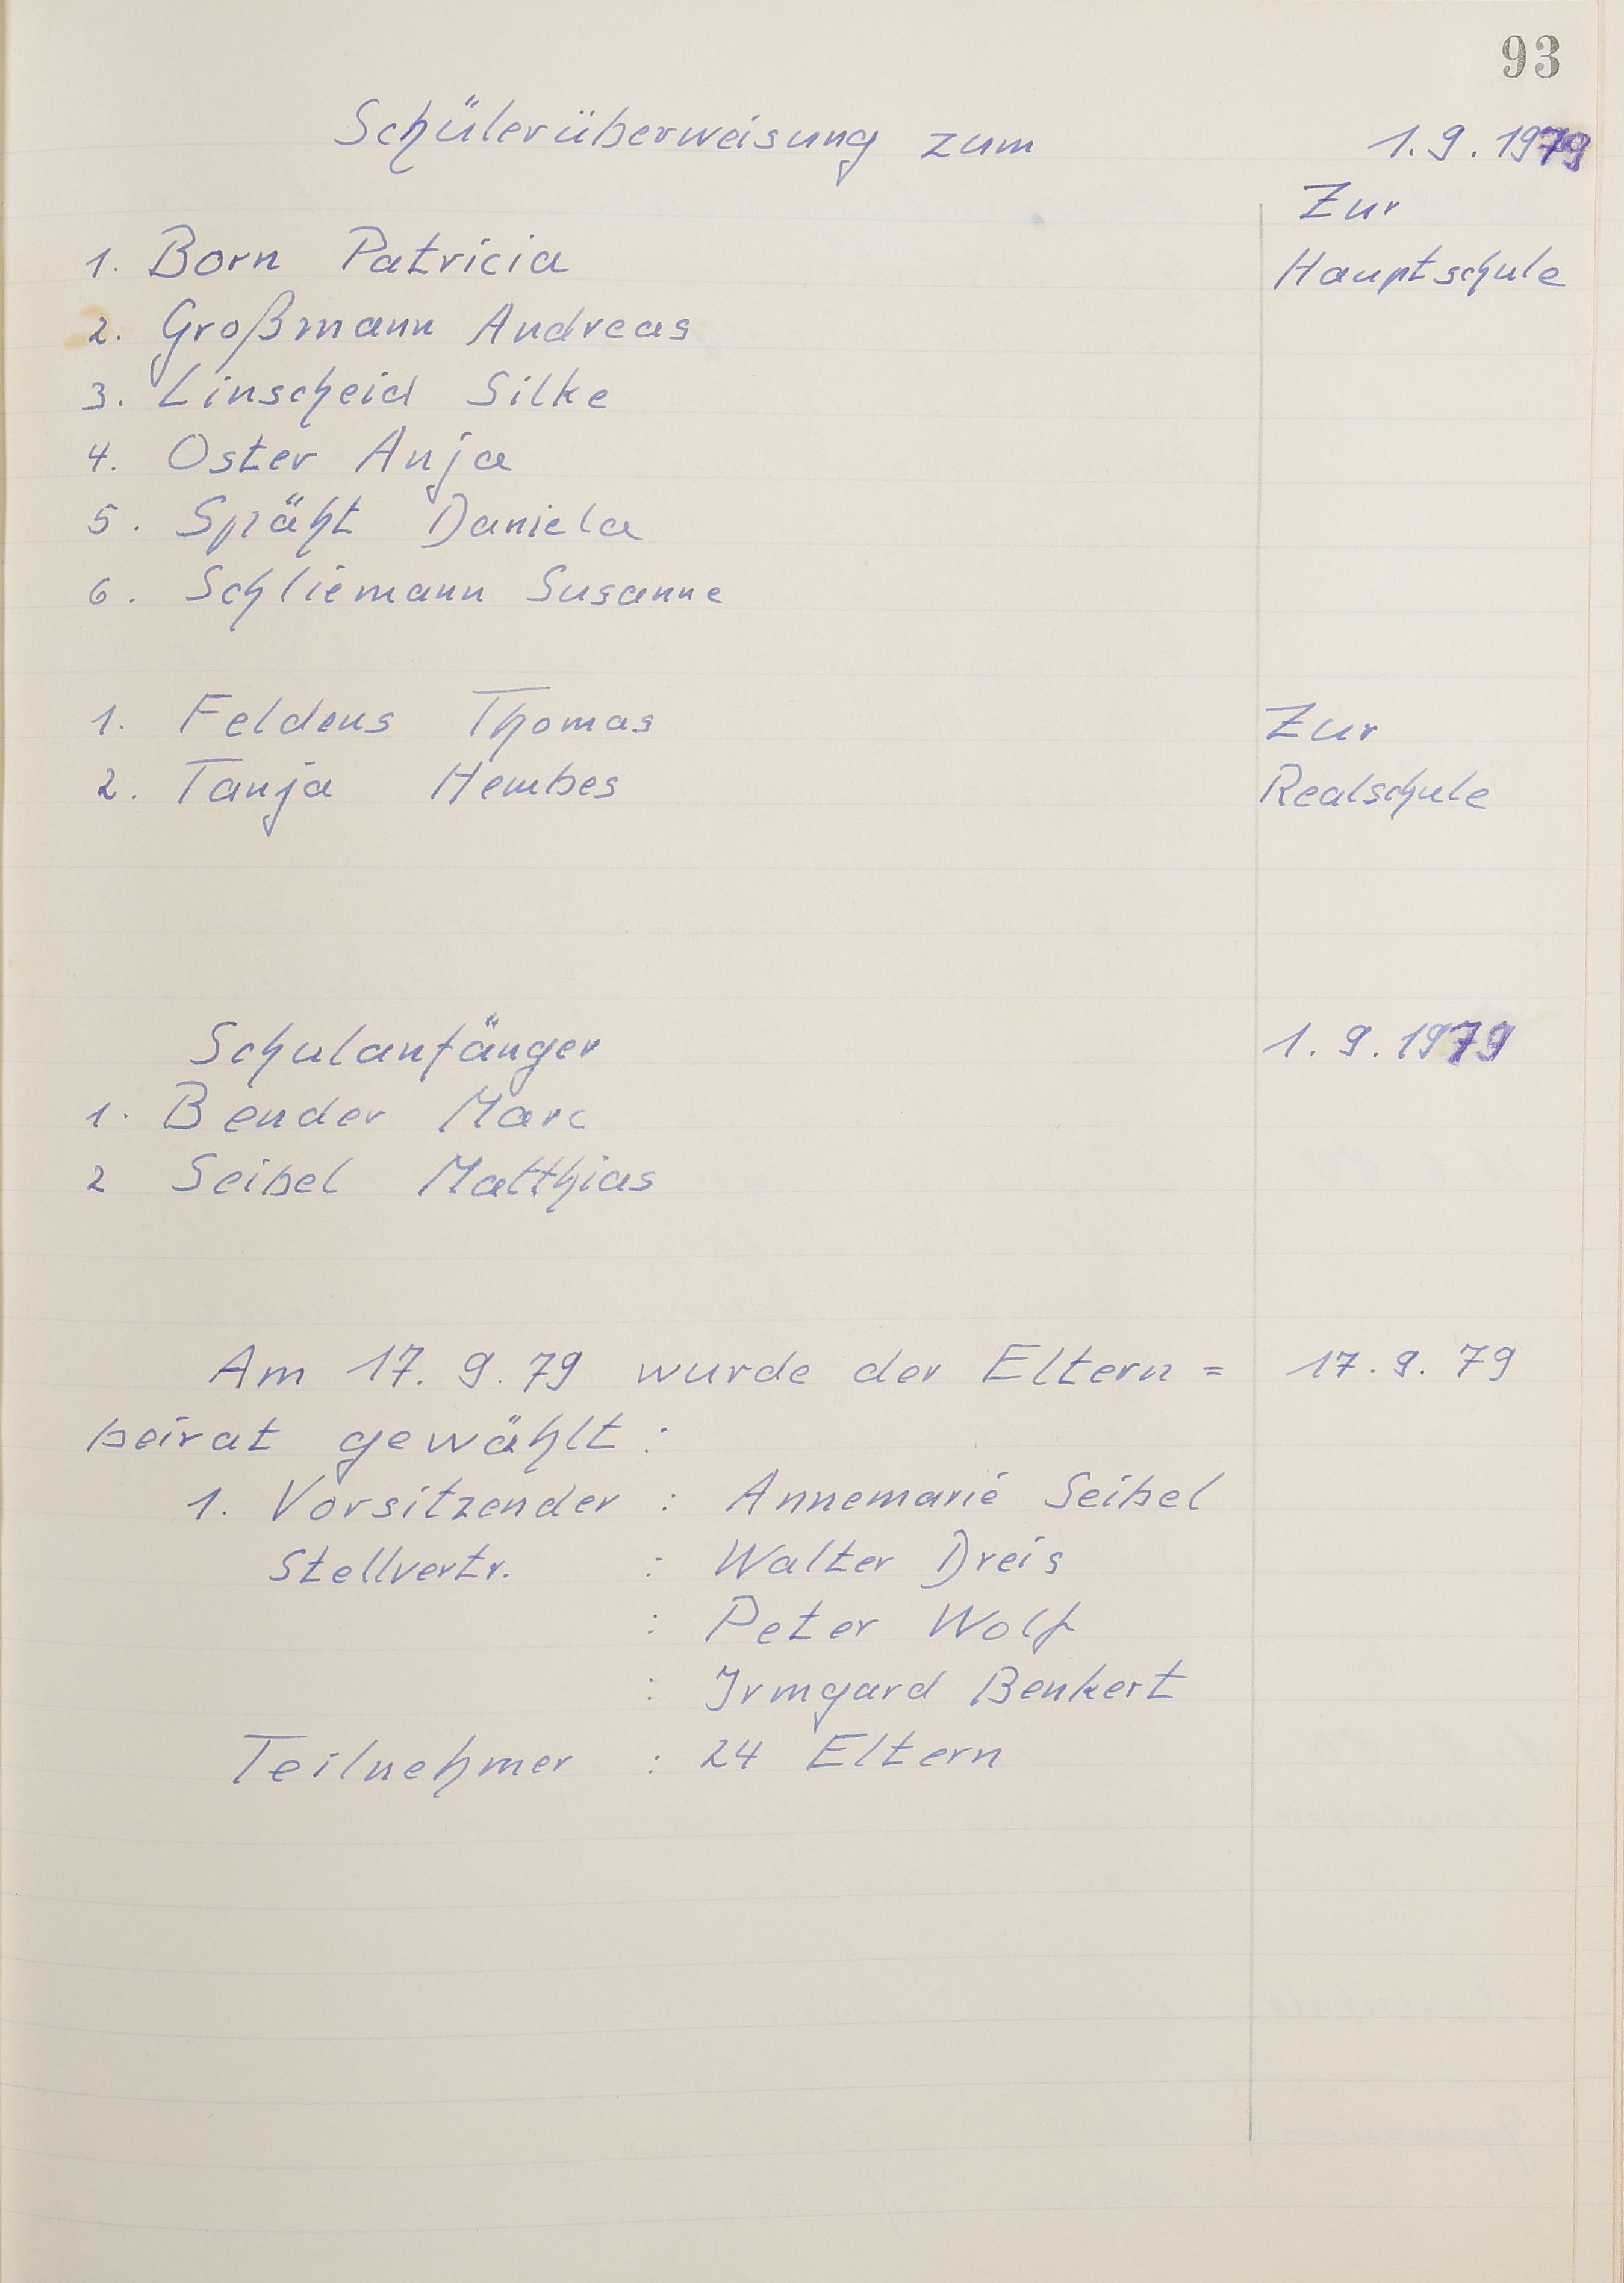 93
Schülerüberweisung zum 1.9.1979
Zur
1. Born Patricia Hauptschule
2. Großmann Andreas
3. Linscheid Silke
4. Oster Anja
5. Späht Daniela
6. Schliemann Susanne
1. Feldens Thomas Zur
2. Tanja Hembes Realschule
Schulanfänger 1.9.1979
1. Bender Marc
2 Seibel Matthias
Am 17.9.79 wurde der Eltern= 17.9.79
beirat gewählt:
1. Vorsitzender : Annemarie Seibel
Stellvertr. : Walter Dreis
: Peter Wolf
: Irmgard Benkert
Teilnehmer : 24 Eltern